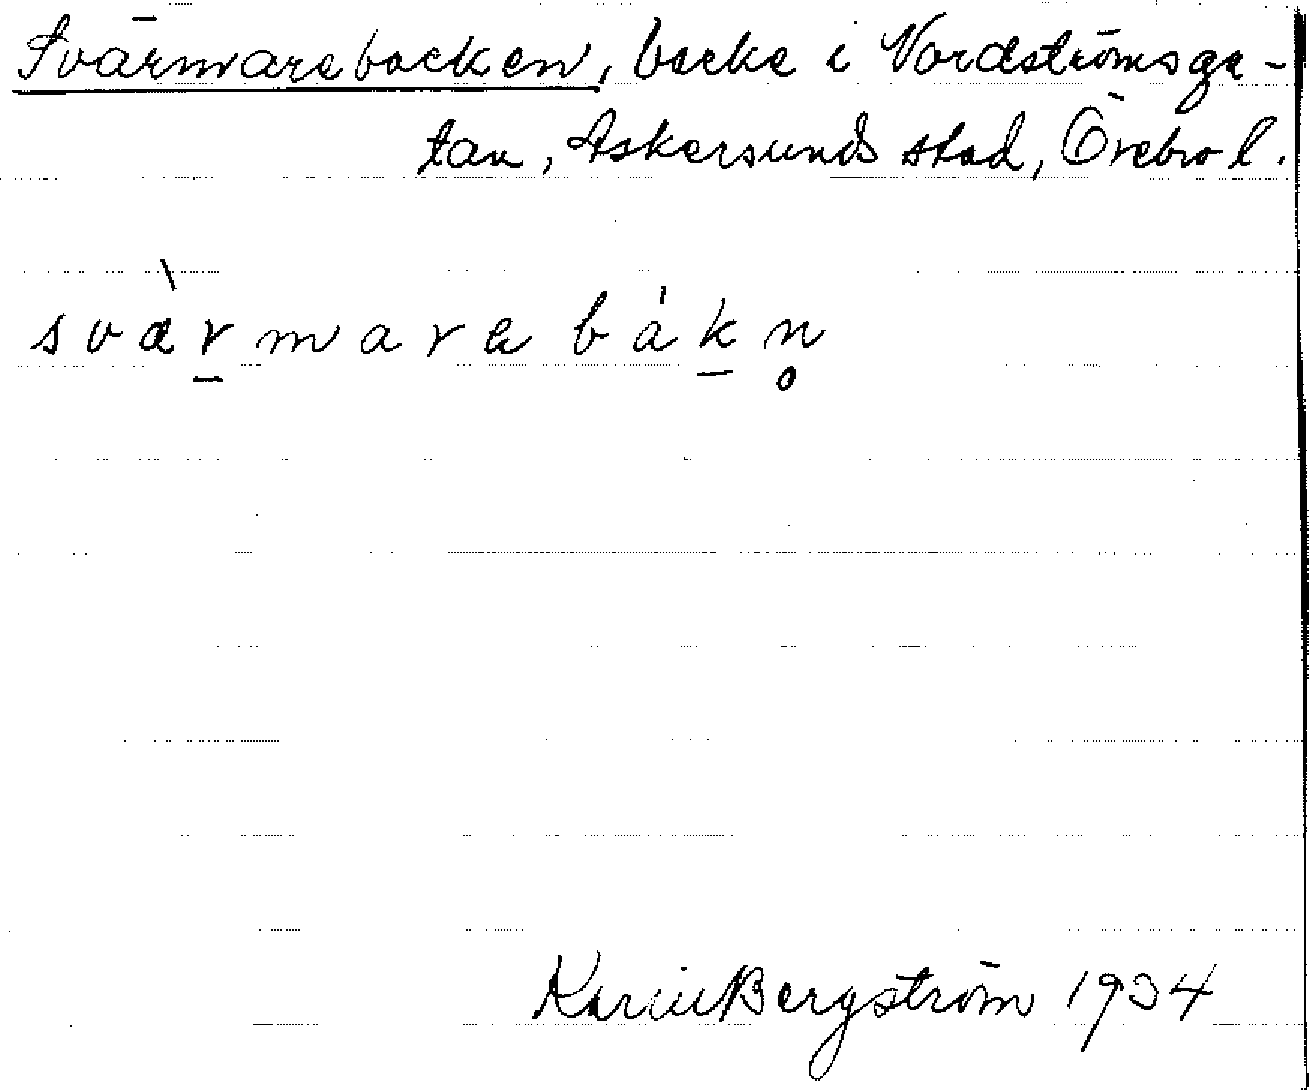 Svärmarebacken, backe i Nordströmsga-
tan, Askersunds stad, Örebro l.
svær̲marɐ bák̲n̥
Karin Bergström 1934